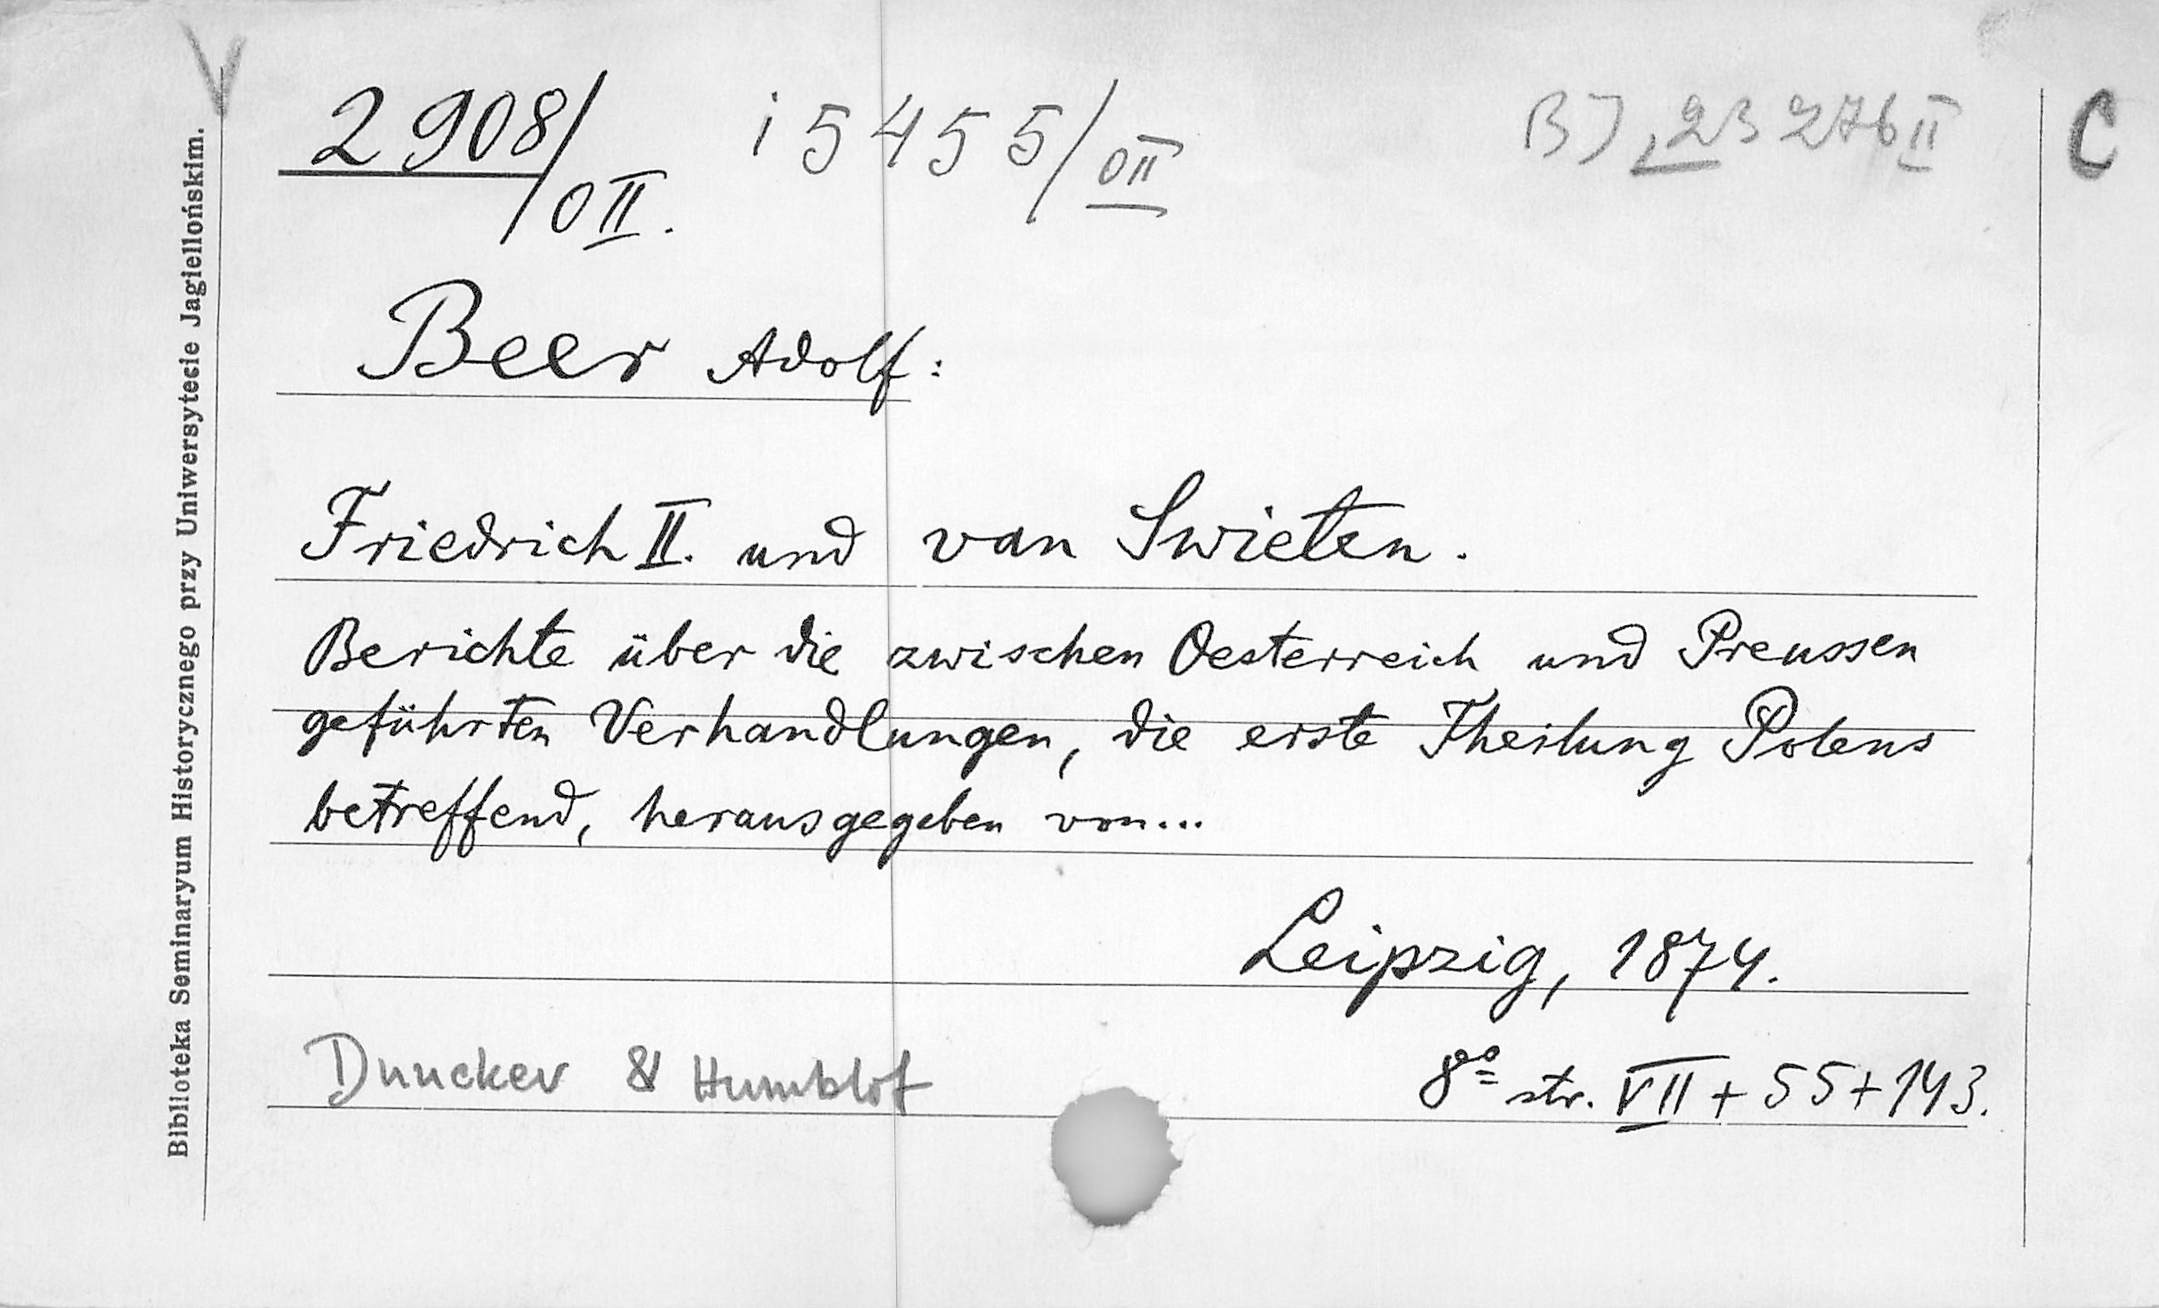 V
2908/OII. i 5455/OII BJ, 23 276 II C
Biblioteka Seminaryum Historycznego przy Uniwersytecie Jagiellońskim.
Beer Adolf:
Friedrich II. und van Swieten.
Berichte über die zwischen Oesterreich und Preussen
geführten Verhandlungen, die erste Theilung Polens
betreffend, herausgegeben von...
Leipzig, 1874.
Duncker & Humblot 8º str. VII + 55 + 143.